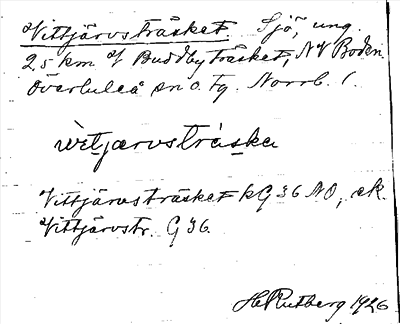 Vittjärvsträsket. Sjö, ung.
25 km V Buddbyträsket, NV Boden.
Överluleå sn o. tg. Norrb. l.
vìtjærvstràska
Vittjärvsträsket kG 36 NO, ek.
Vittjärvstr. G 36.
H. Rutberg 1926